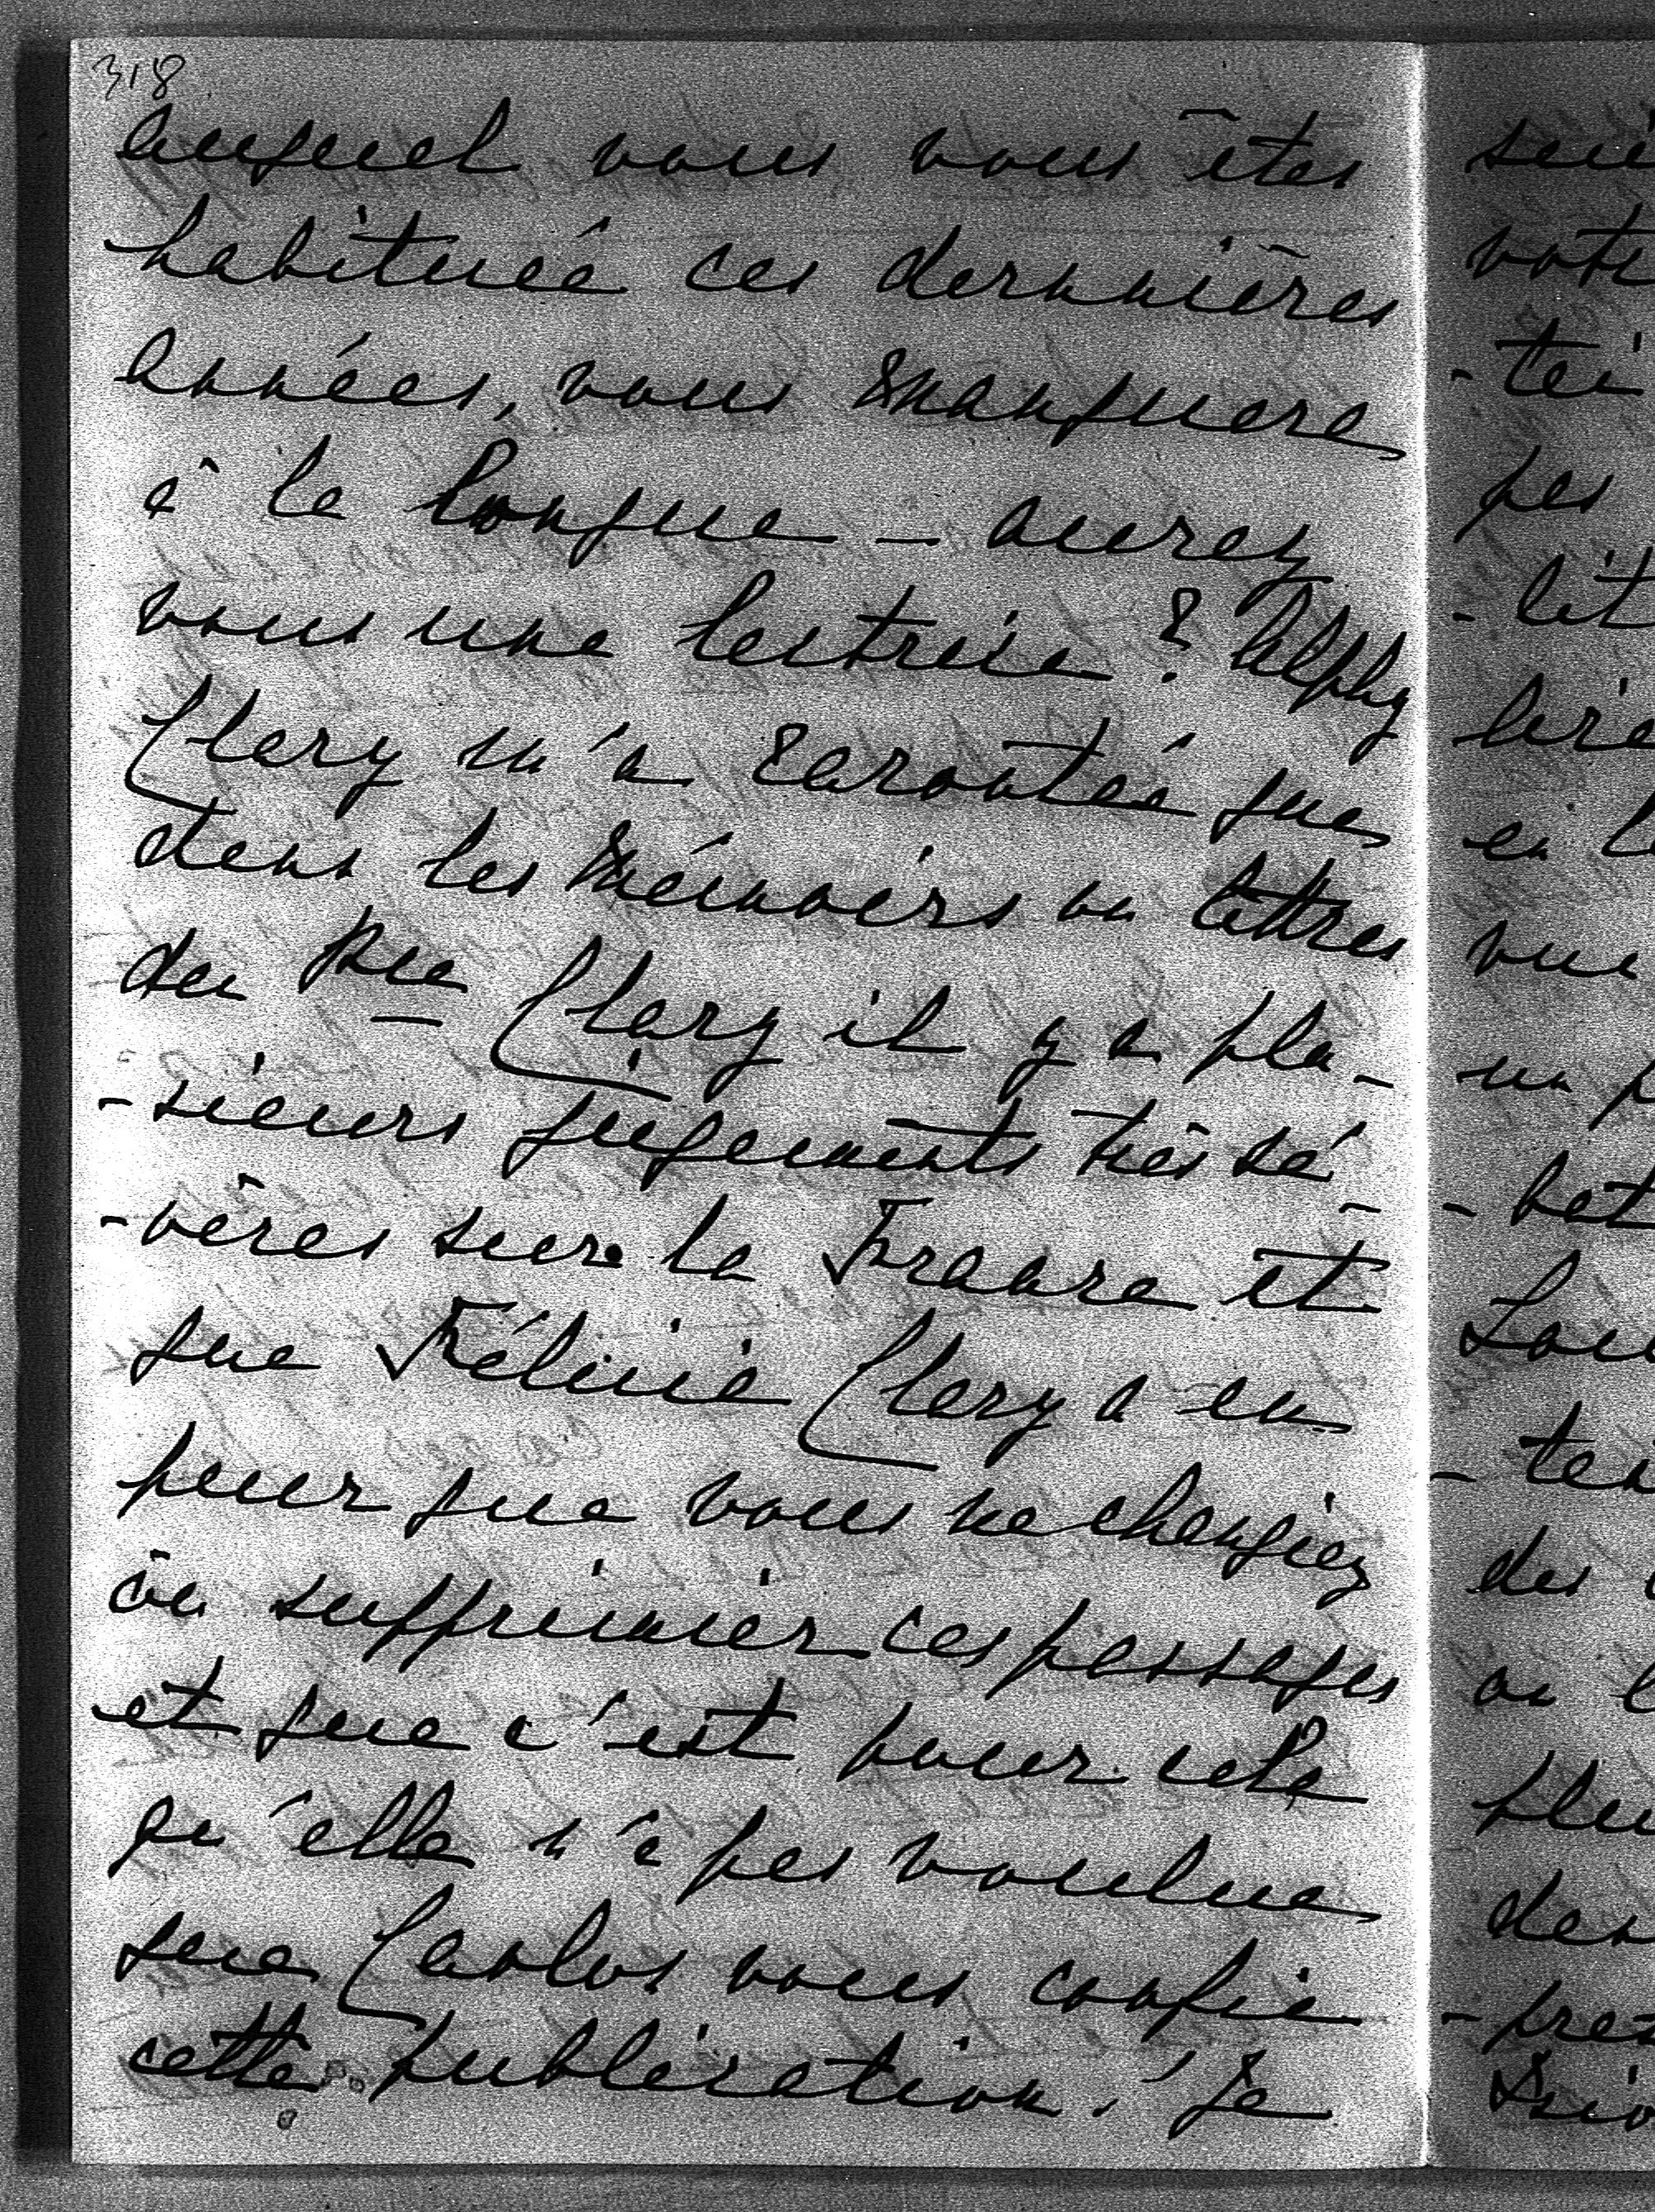 318
auquel vous vous êtes
habituée ces dernières
années, vous manquera
à la longue – aurez
vous une lectrice? Alphy
Clary m'a raconté que
dans les Mémoirs ou lettres
du Pce Clary il y a plu-
-sieurs jugements très sé-
-vères sur la France et
que Félicie Clary a eu
peur que vous ne changiez
ou supprimier ces passages
et que c'est pour cela
qu'elle n'a pas voulue
que Carlos vous confie
cette publication. Je